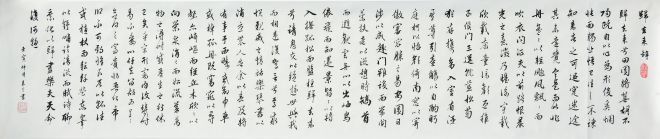 歸去來辭
歸去來兮田園將蕪胡不
歸既自以心為形役奚惆
悵而獨悲悟已往之不諫
知來者之可追實迷途
其未遠覺今是而昨非
舟遙遙以輕颺風飄飄而
吹衣問征夫以前路恨晨
光之熹微乃瞻衡宇載
欣載奔僮僕歡迎稚
子候門三逕就荒松菊
猶存攜幼入室有酒
盈樽引壺觴以自酌眄
庭柯以怡顏倚南窗以寄
傲審容膝之易安園日
涉以成趣門雖設而常關
策扶老以流憩時矯首
而遐觀雲無心以出岫鳥
倦飛而知還景翳翳以將
入撫孤松而盤桓歸去來
兮請息交以絕遊世與我
而相違復駕言兮焉求
悅親戚之情話樂琴書以
消憂農人告余以春及將
有事於西疇或命巾車
或棹孤舟既窈窕以尋
壑亦崎嶇而經丘木欣欣以
向榮泉涓涓而始流善萬
物之得時感吾生之行休
已矣乎寓形宇內復幾時
曷不委心任去留胡
之富貴非吾願帝鄉
不可期懷良辰以孤往
或植杖而耘耔登東皋
以舒嘯臨清流而賦詩聊
乘化以歸盡樂夫天命
復奚疑